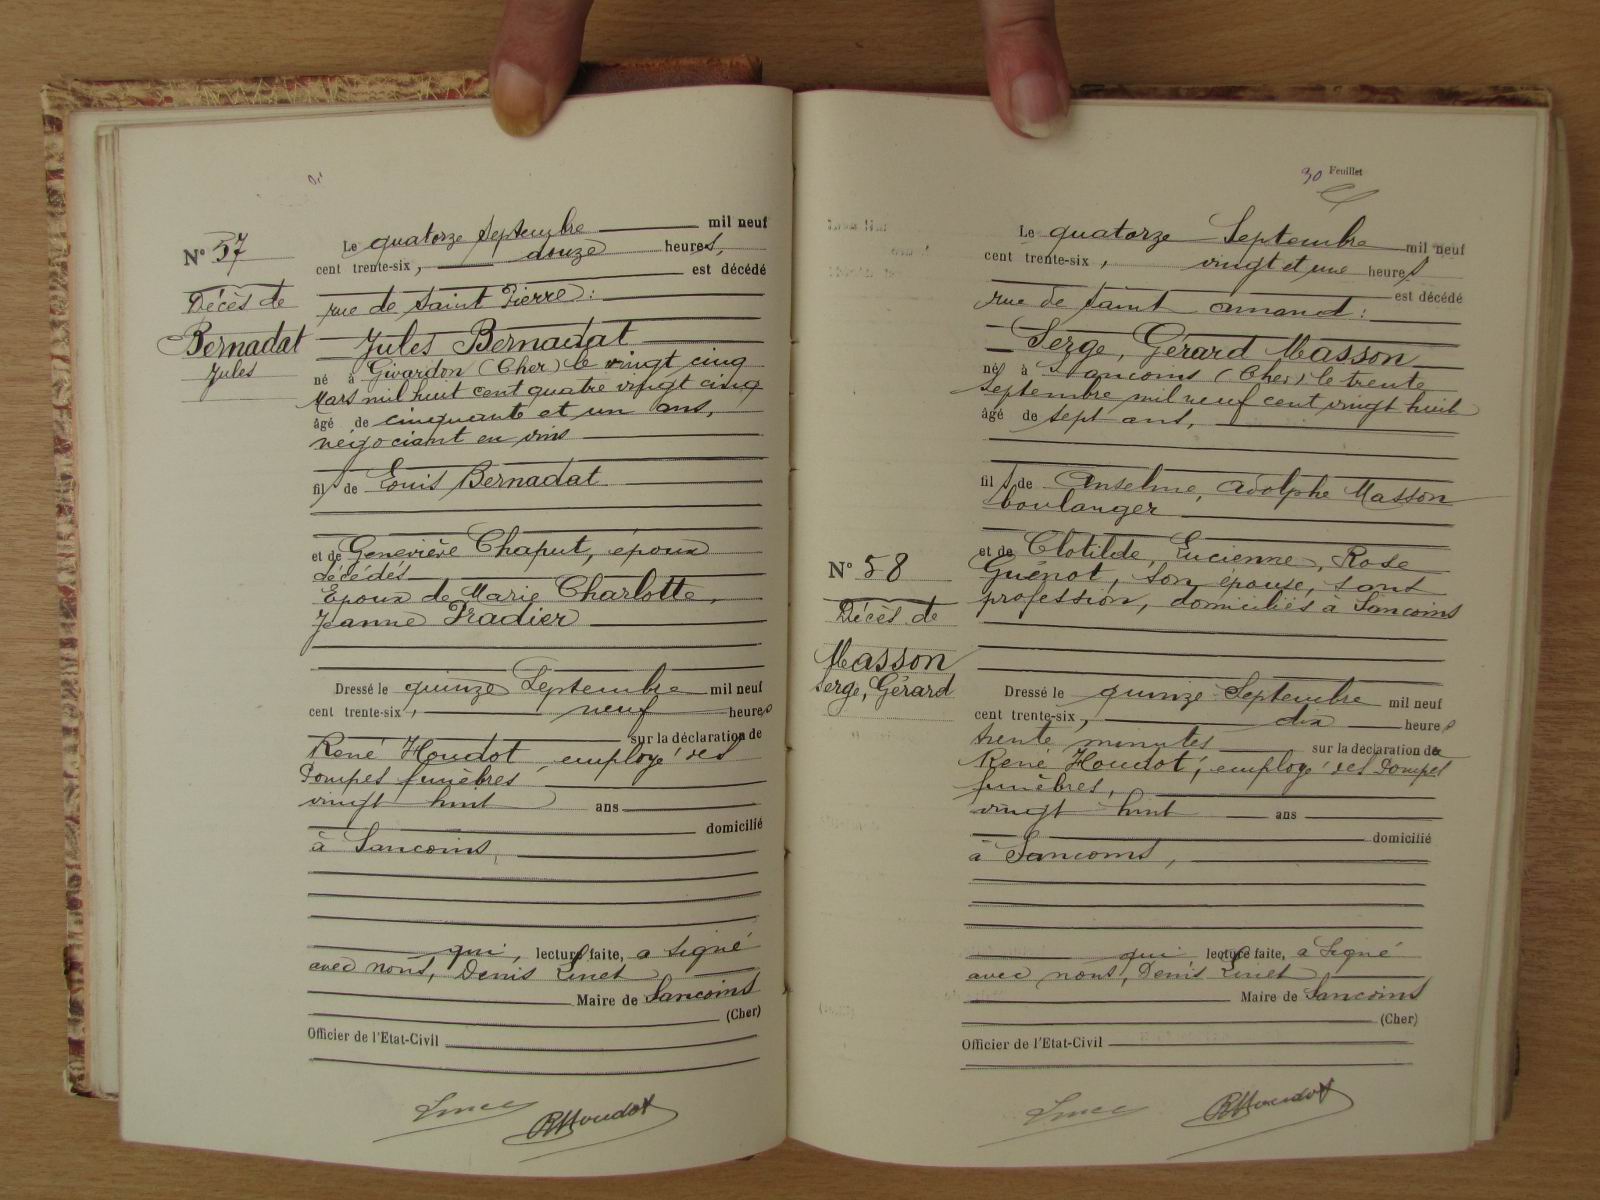 N° 57
Décès de
Bernadat
Jules
Le quatorze Septembre mil neuf
cent trente-six, douze heures,
est décédé
rue de Saint Pierre :
Jules Bernadat
né à Givardon (Cher) le vingt cinq
Mars mil huit cent quatre vingt cinq
âgé de cinquante et un ans,
négociant en vins
fils de Louis Bernadat
et de Geneviève Chaput, époux
décédés
Epoux de Marie Charlotte,
Jeanne Pradier
Dressé le quinze Septembre mil neuf
cent trente-six, neuf heures
sur la déclaration de
René Houdot, employé des
Pompes funèbres
vingt huit ans
domicilié
à Sancoins,
qui, lecture faite, a signé
avec nous, Denis Linet
Maire de Sancoins
(Cher)
Officier de l'Etat-Civil
RHoudot
30 Feuillet
N° 58
Décès de
Masson
Serge, Gérard
Le quatorze Septembre mil neuf
cent trente-six, vingt et une heures
est décédé
rue de Saint Amand :
Serge, Gérard Masson
né à Sancoins (Cher) le trente
Septembre mil neuf cent vingt huit
âgé de sept ans,
fils de Anselme, Adolphe Masson
boulanger
et de Clotilde, Lucienne, Rose
Guénot, son épouse, sans
profession, domiciliés à Sancoins
Dressé le quinze Septembre mil neuf
cent trente-six, dix heures
trente minutes sur la déclaration de
René Houdot, employé des Pompes
funèbres,
vingt huit ans
domicilié
à Sancoins,
qui lecture faite, a signé
avec nous, Denis Linet
Maire de Sancoins
(Cher)
Officier de l'Etat-Civil
RHoudot